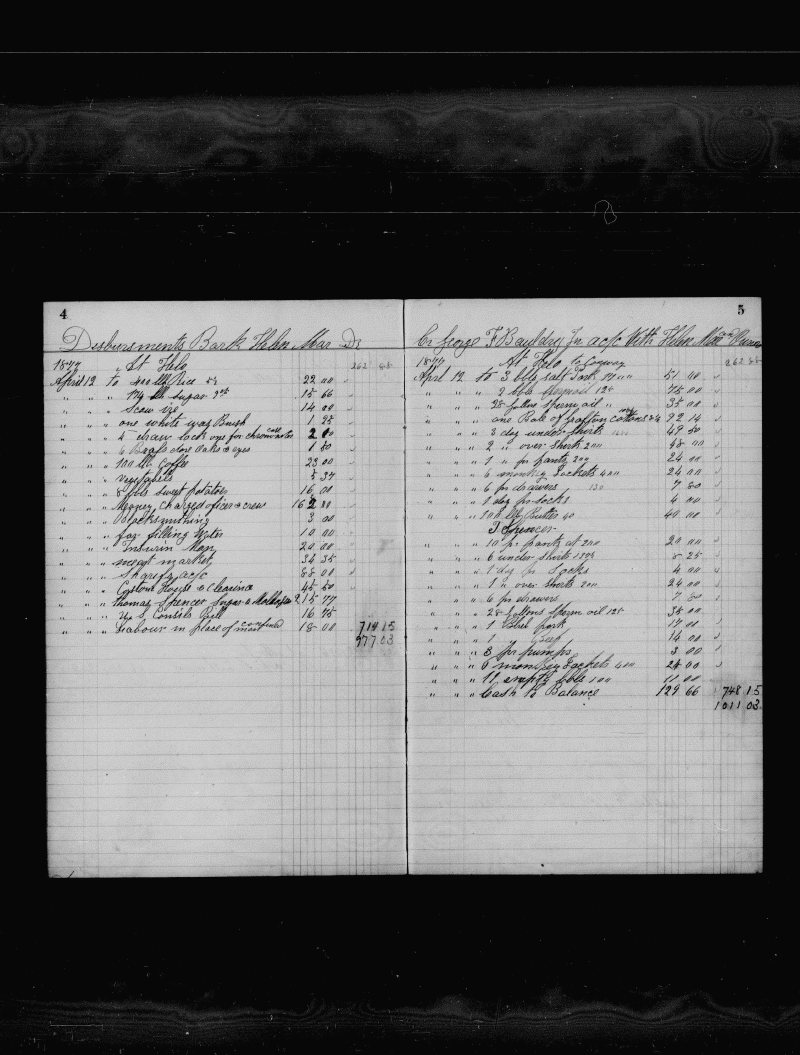 4
Desbursments Bark Helen Mar Dr
1877 " At Helo 262 88
April 12 to 440 lb Rice 5c 22 00
" " " 174 lb Sugar 9 ct 15 66
" " " Scow ire 14 00
" " " one white wag Brush 1 25
" " " 4 straw
" " " 6 Beafs close Oaks & eyes 1 50
" " " 100 lb Coffee 23 00
" " " vegetabels 5 37
" " " 8 bbls sweet potatoes 16 00
" " " Money Charged officers & crew 162 80
" " " Blacksmithing 3 00
" " " for filling Water 10 00
" " " Men 20 00
" " " meat market 34 35
" " " Sharefs a/c 88 00
" " " Custom House & Clearing 45 50
" " " Thomas Spencer Sugar & Molasses 215 77
" " " U S Consels Bill 16 75
" " " Labour in place of men confined 18 00 714 15
977 03
5
Cr George F Bauldry In a/c With Helen Mar and Owners
1877 At Helo to 262 88
April 12 to 3 bbls salt Pork 17 00 51 00
" " " 2 bbls 75 00
" " " 28 gallons sperm oil " 35 00
" " " one Bale of Grafton Cottons 92 14
" " " 3 doz under shirts 49 50
" " " 2 " over shirts 200 48 00
" " " 1 " pr pants 200 24 00
" " " 6 monkey Jackets 400 24 00
" " " 6 pr drawers 130 7 80
" " " 1 doz pr socks 4 00
" " " 100 lb Butter 40 40 00
T Spencer
" " " 10 pr pants at 200 20 00
" " " 6 under shirts 8 25
" " " 1 doz pr Socks 4 00
" " " 1 " over shirts 200 24 00
" " " 6 pr drawers 7 80
" " " 28 gallons Sperm oil 125 35 00
" " " 1 Bbrl pork 17 00
" " " 1 " Beef 14 00
" " " 3 pr pumps 3 00
" " " 6 monkey Jackets 400 24 00
" " " 11 empty bbls 100 11 00
" " " Cash to Balance 129 66 748 15
1011 03